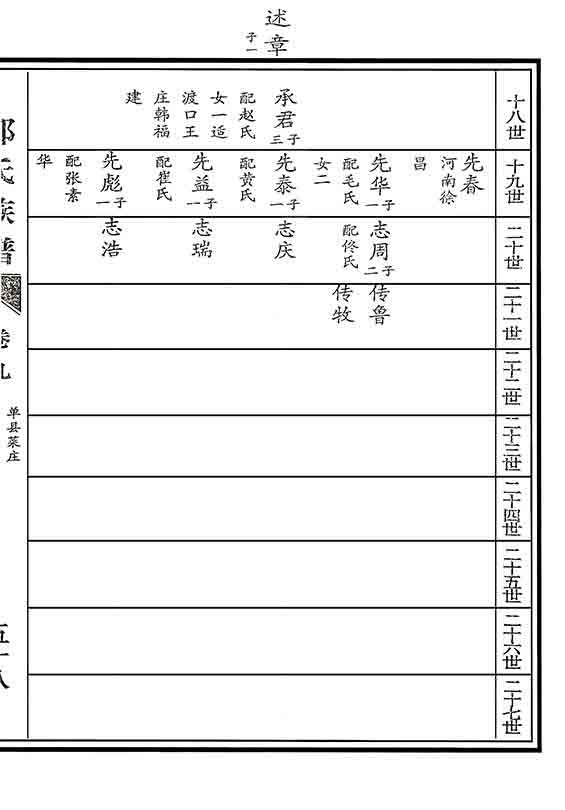 述章
子一
十八世
承君
三子
配赵氏
女一适
渡口王
庄韩福
建
十九世
先春
河南徐
昌
先华
一子
配毛氏
女二
先泰
一子
配黄氏
先益
一子
配崔氏
先彪
一子
配张素
华
二十世
志周
二子
配佟氏
志庆
志瑞
志浩
二十一世
传鲁
传牧
二十二世
二十三世
二十四世
二十五世
二十六世
二十七世
氏族谱
卷九
单县菜庄
五十八